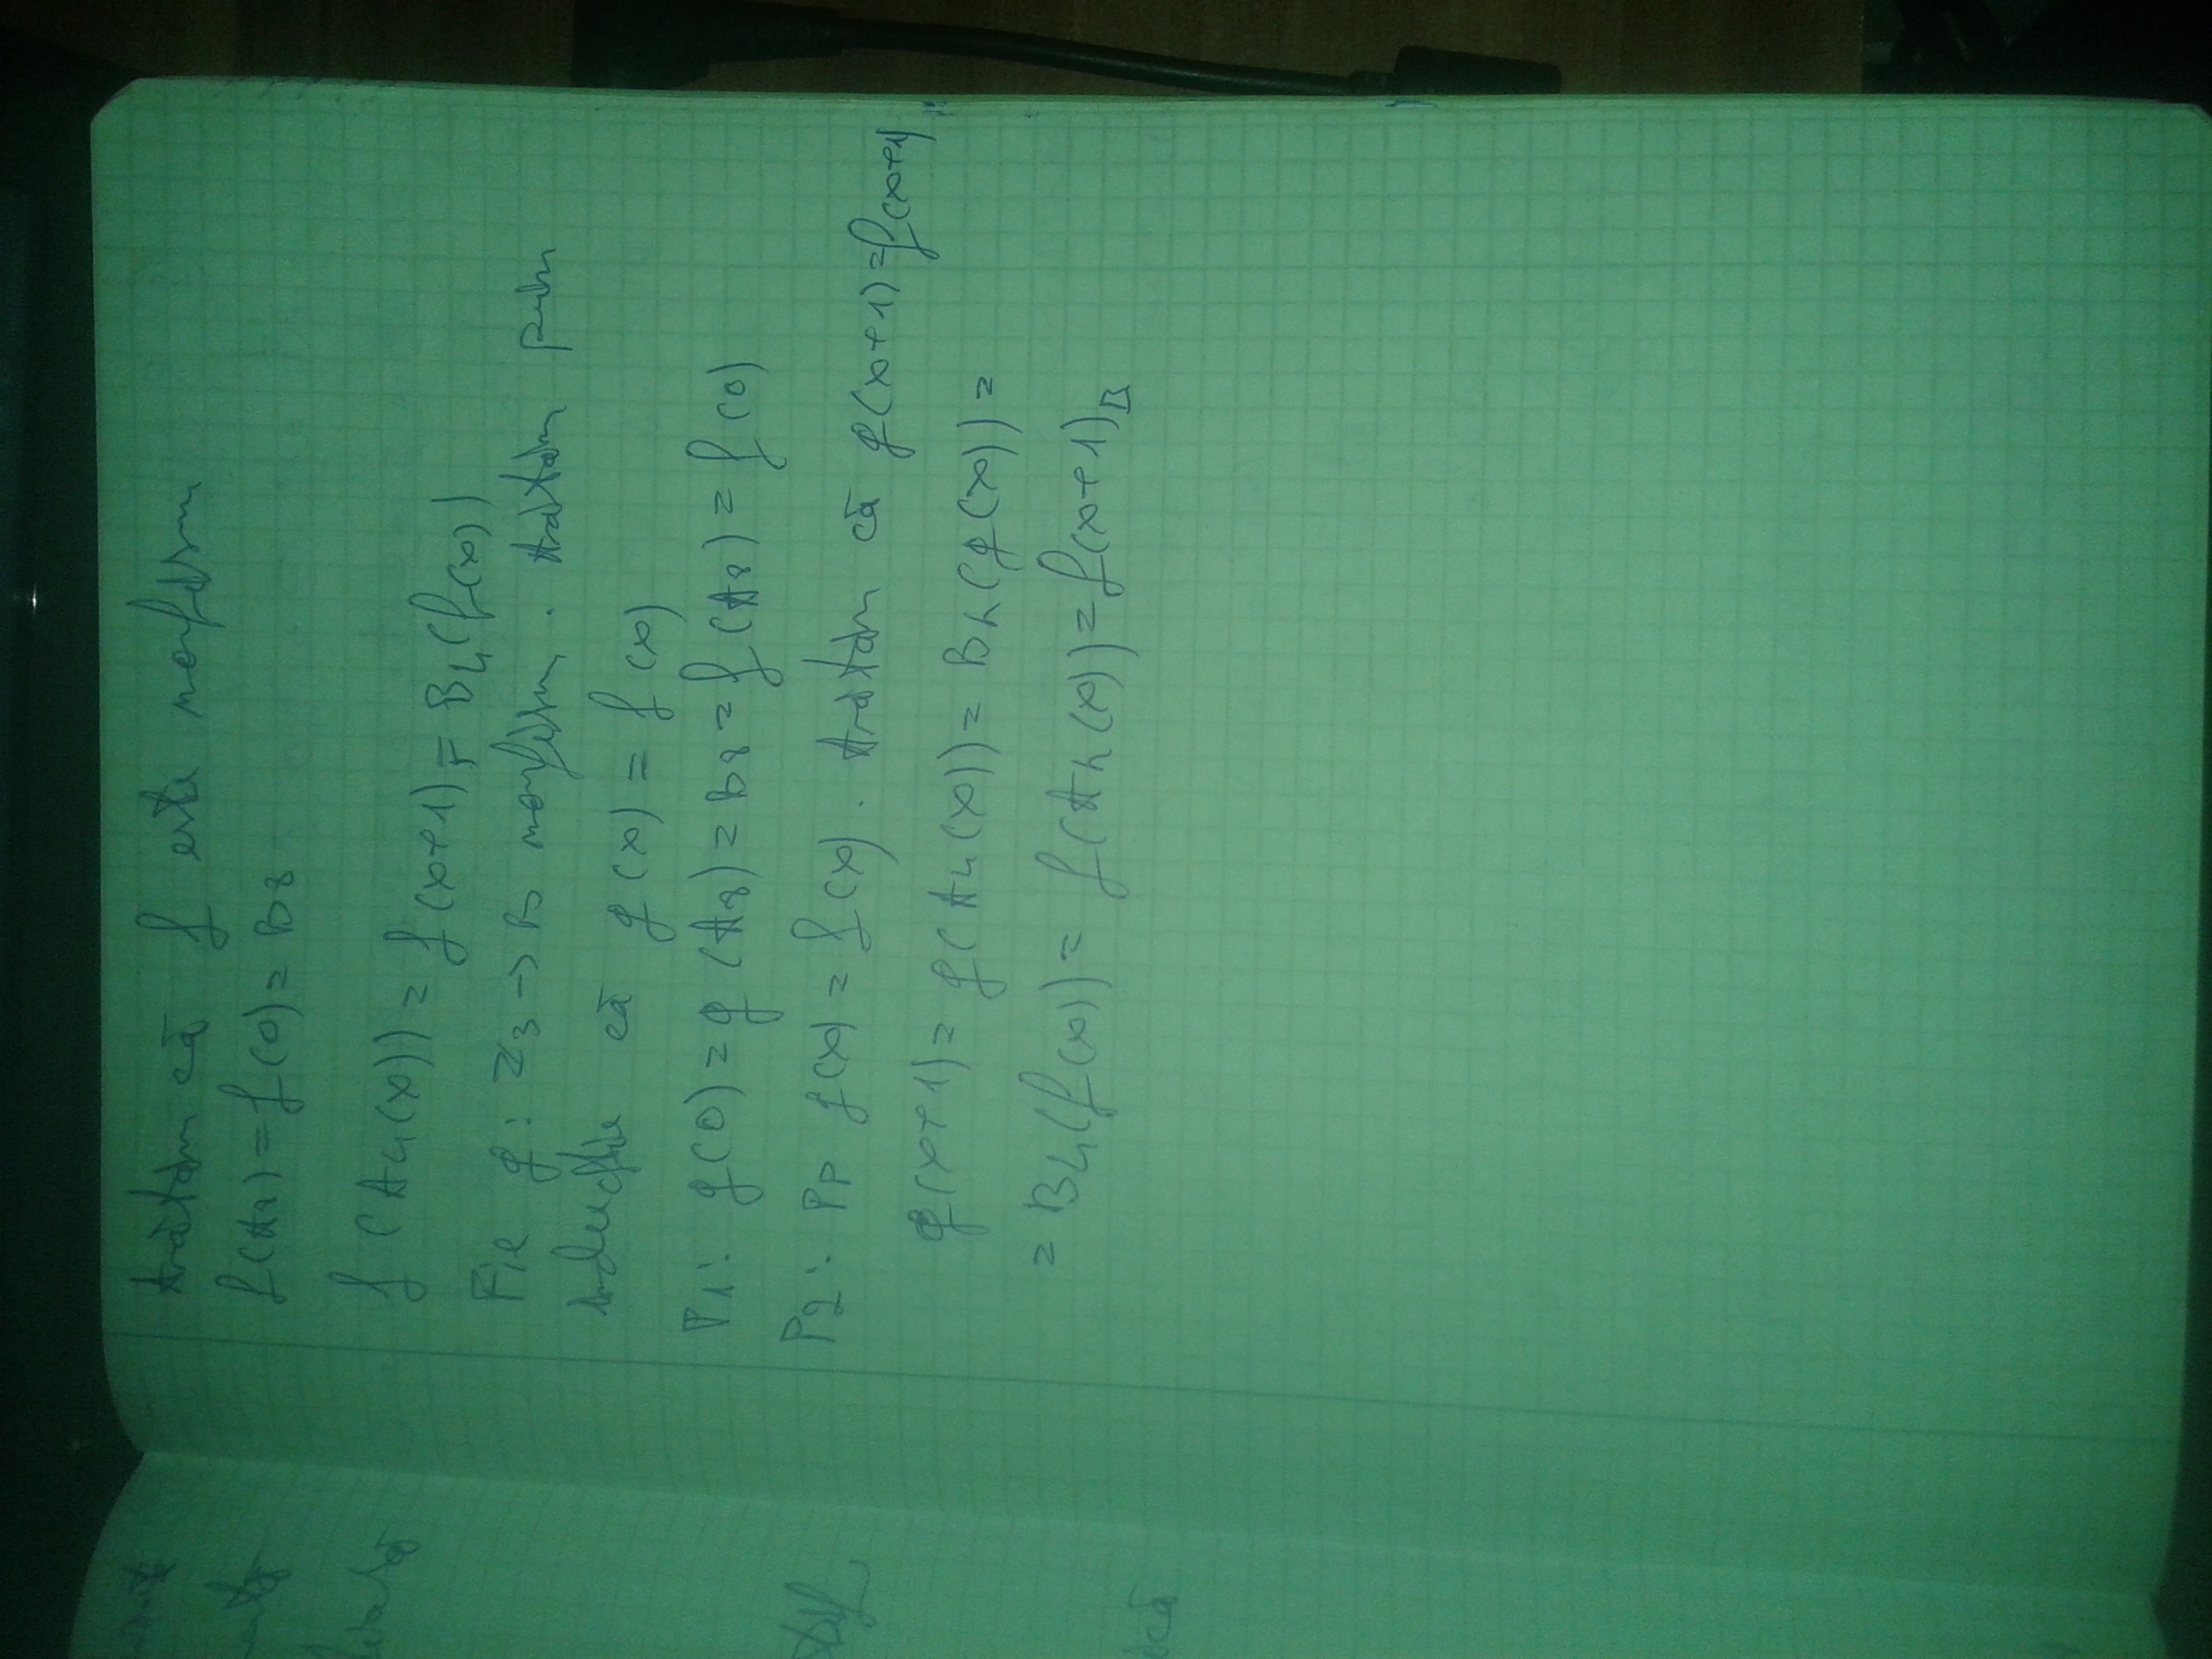 Arătăm că f este morfism
f(A8) = f(0) = B8
f(A4(x)) = f(x+1) = B4(f(x))
Fie g: Z3 → B morfism. Arătăm prin
inducție că g(x) = f(x)
P1: g(0) = g(A8) = B8 = f(A8) = f(0)
P2: Pp g(x) = f(x). Arătăm că g(x+1)=f(x+1)
g(x+1) = g(A4(x)) = B4(g(x)) =
= B4(f(x)) = f(A4(x)) = f(x+1)